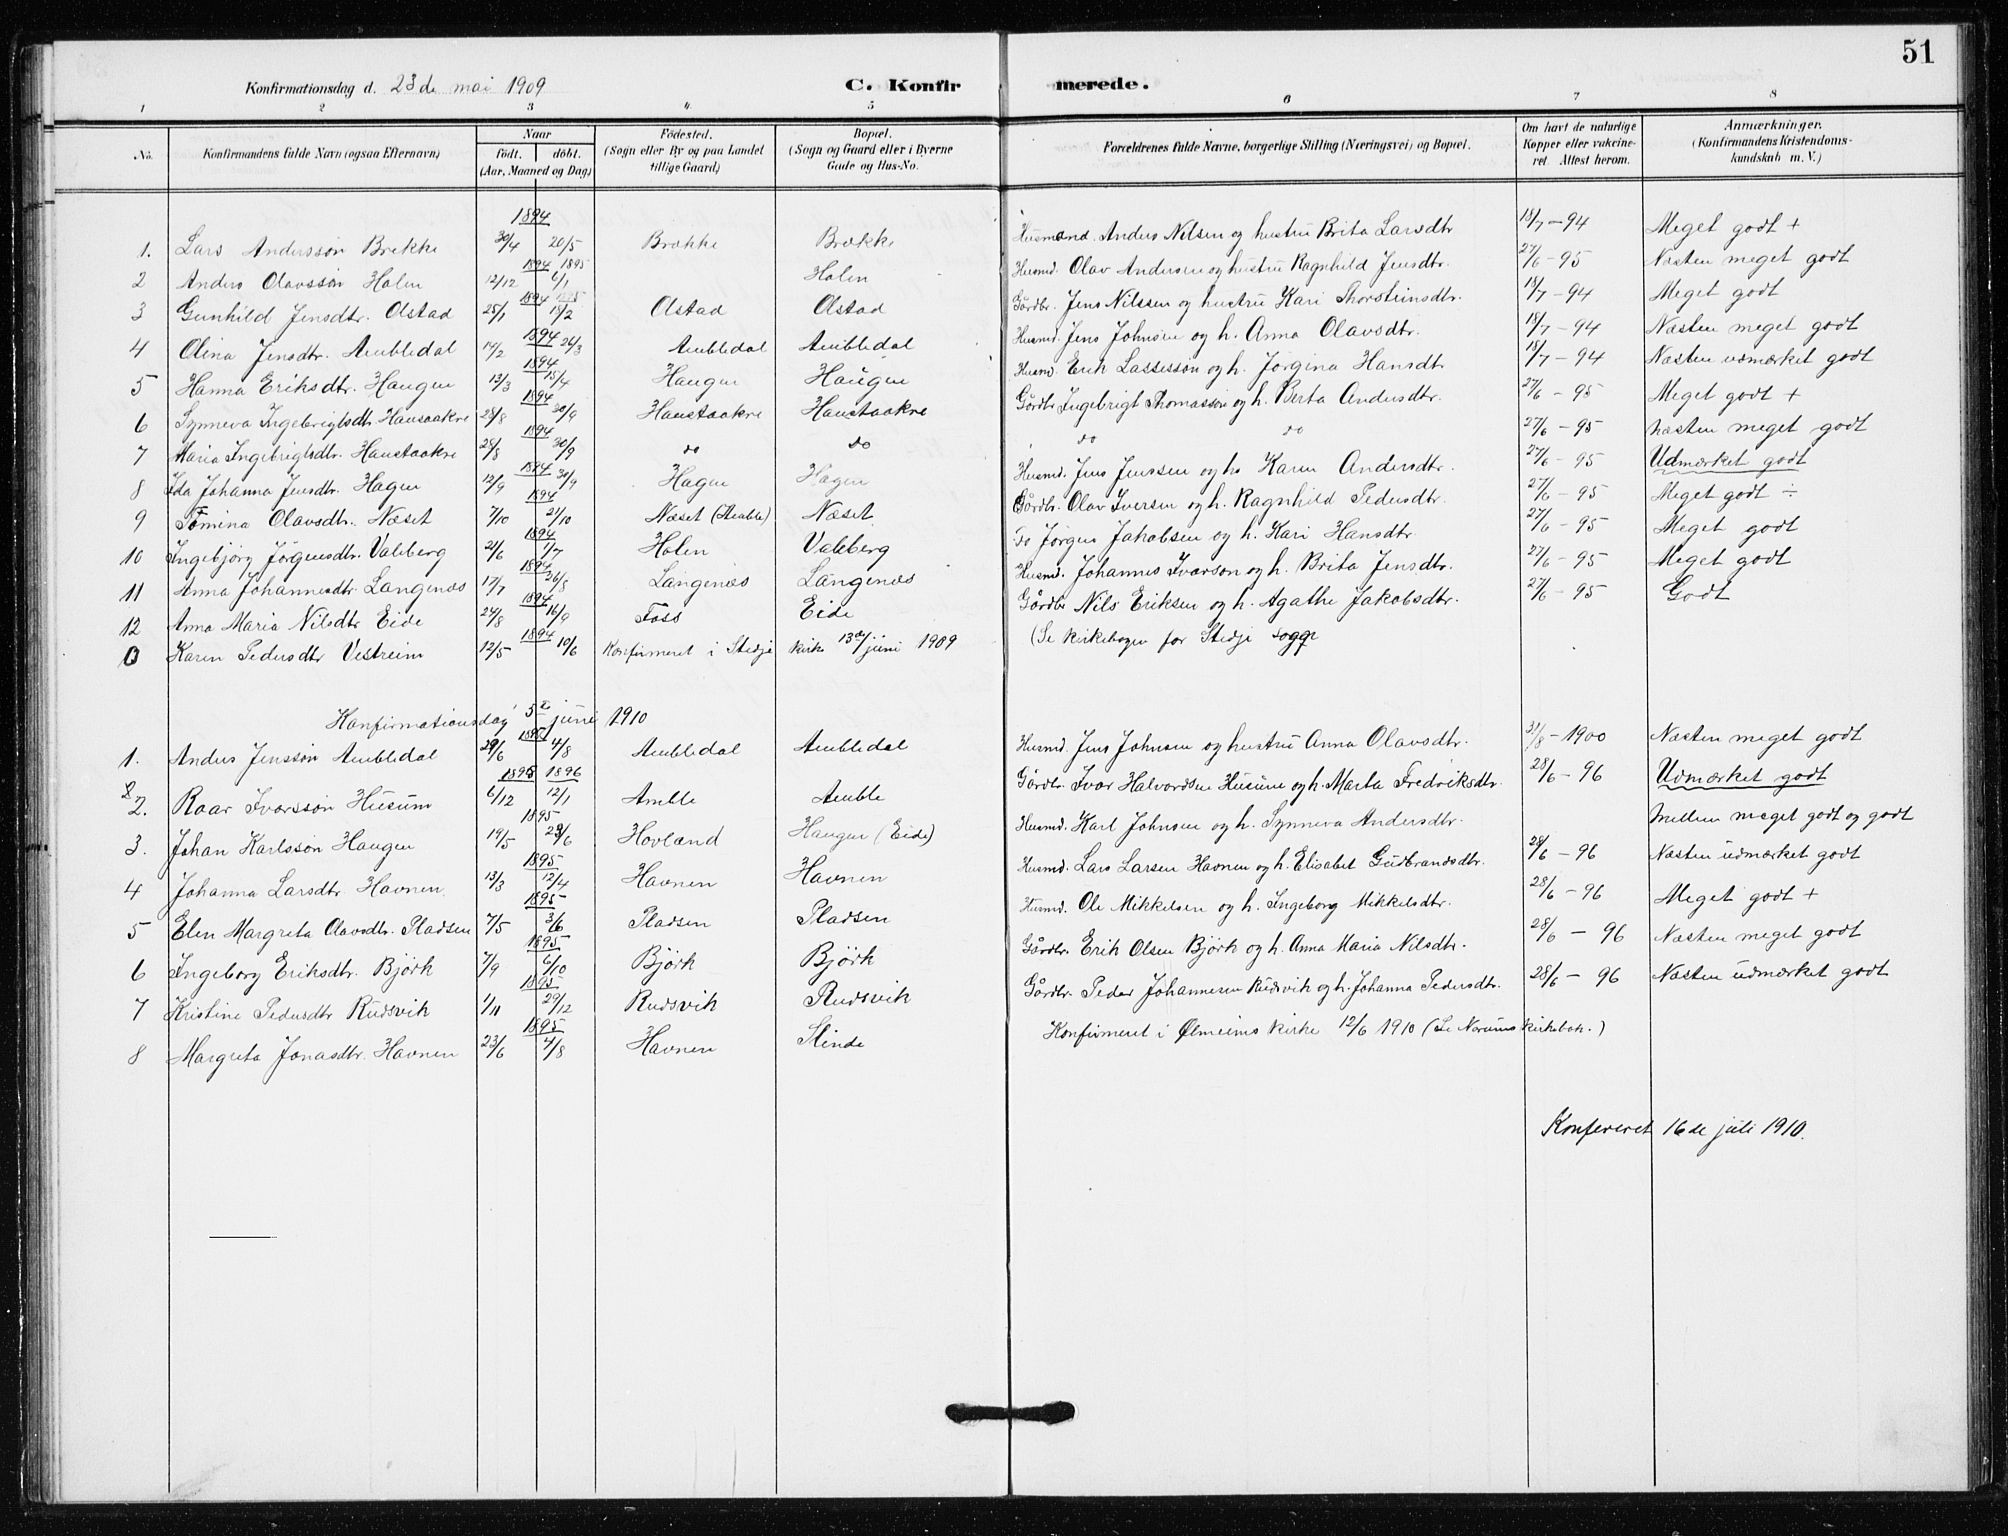 51
Konfirmationsdag d. 23de mai 1909 C. Konfirmerede.
1 2 3 4 5 6 7 8
No. Konfirmandens fulde Navn (ogsaa Efternavn) Naar födt. döbt. (Aar, Maaned og Dag) Födested. (Sogn eller By og paa Landet tillige Gaard) Bopæl. (Sogn og Gaard eller i Byerne Gade og Hus-No. Forældrenes fulde Navne, borgerlige Stilling (Næringsvei) og Bopæl. Om havt de naturlige Kopper eller vakcineret. Attest herom. Anmærkninger. (Konfirmandens Kristendomskundskab m. V.)
1894
1. Lars Anderssön Brekke 30/4 20/5 Brekke Brekke Husmand. Anders Nilsen og hustru Brita Larsdtr 18/7-94 Meget godt +
1894 1895
2 Anders Olavssön Holen 12/12 6/1 Holen Husmd. Olav Andersen og hustru Ragnhild Jensdtr. 27/6-95 Næsten meget godt
1894 1895
3 Gunhild Jensdtr. Olstad 25/1 18/2 Olstad Olstad Gårdbr. Jens Nilssen og hustru Kari Thorsteinsdtr. 18/7-94 Meget godt
1894
4 Olina Jensdtr. Ambledal 14/2 26/3 Ambledal Ambledal Husmd. Jens Johnsen og h. Anna Olavsdtr. 18/7-94 Næsten meget godt
1894
5 Hanna Eriksdtr. Haugen 12/3 15/4 Haugen Haugen Husmd. Erik Lassessön og h. Jörgina Hansdtr 18/7-94 Næsten udmærket godt
1894
6 Synneva Ingebrigtsdtr Haustaakre 28/8 30/9 Haustaakre Haustaakre Gårdbr Ingebrigt Thomassön og h. Berta Andersdtr. 27/6-95 Meget godt +
1894
7 Maria Ingebrigtsdtr. Haustaakre 28/8 30/9 do do do do 27/6-95 Næsten meget godt
1894
8 Ida Johanna Jensdtr. Hagen 12/9 30/9 Hagen Hagen Husmd. Jens Jenssen og h. Karen Andersdtr. 27/6-95 Udmærket godt
1894
9 Tomina Olavsdtr. Næset 7/10 21/10 Næset (Amble) Næset Gårdbr. Olav Iversen og h. Ragnhild Pedersdtr. 27/6-95 Meget godt ÷
1894
10 Ingebjörg Jörgensdtr. Valeberg 21/6 1/7 Holen Valeberg Do Jörgen Jakobsen og h. Kari Hansdtr. 27/6-95 Meget godt
1894
11 Anna Johannesdtr. Langenæs 17/7 26/8 Langenæs Langenæs Husmd. Johannes Ivarson og h. Brita Jensdtr. 27/6-95 Meget godt
1894
12 Anna Maria Nilsdtr Eide 24/8 16/9 Foss Eide Gårdbr Nils Eriksen og h. Agathe Jakobsdtr. 27/6-95 Godt
1894
0 Karen Pedersdtr Vestreim 12/5 10/6 Konfirmeret i Stedje kirke 13de/juni 1909 (Se kirkebogen for Stedje sogn
Konfirmationsdag 5te juni 1910
1895
1. Anders Jenssön Ambledal 29/6 4/8 Ambledal Ambledal Husmd. Jens Johnsen og hustru Anna Olavsdtr. 31/8-1900 Næsten meget godt
1895 1896
2. Roar Ivarssön Husum 6/12 12/1 Amble Amble Gårdbr. Ivar Halvordsen Husum og h. Marta Fredriksdtr. 28/6-96 Udmærket godt
1895
3. Johan Karlssön Haugen 19/5 23/6 Hovland Haugen (Eide) Husmd. Karl Johnsen og h. Synneva Andersdtr. Mellem meget godt og godt
1895
4 Johanna Larsdtr Havnen. 13/3 12/4 Havnen Havnen Husmd. Lars Larsen Havnen og h. Elisabet Gudbrandsdtr. 28/6-96 Næsten udmærket godt
1895
5 Elen Margreta Olavsdtr. Pladsen 7/5 3/6 Pladsen Pladsen Husmd. Ole Mikkelsen og h. Ingeborg Mikkelsdtr. 28/6-96 Meget godt +
1895
6 Ingeborg Eriksdtr. Björk 7/9 6/10 Björk Björk Gårdbr. Erik Olsen Björk og h. Anna Maria Nilsdtr. 28/6-96 Næsten meget godt
1895
7 Kristine Pedersdtr Rudsvik 1/11 29/12 Rudsvik Rudsvik Gårdbr. Peder Johannesen Rudsvik og h. Johanna Pedersdtr. 28/6-96 Næsten udmærket godt
1895
8 Margreta Jonasdtr. Havnen 23/6 4/8 Havnen Slinde Konfirmeret i Ølmeims kirke 12/6 1910 (Se Norums kirkebok.)
Konfereret 16de juli 1910.